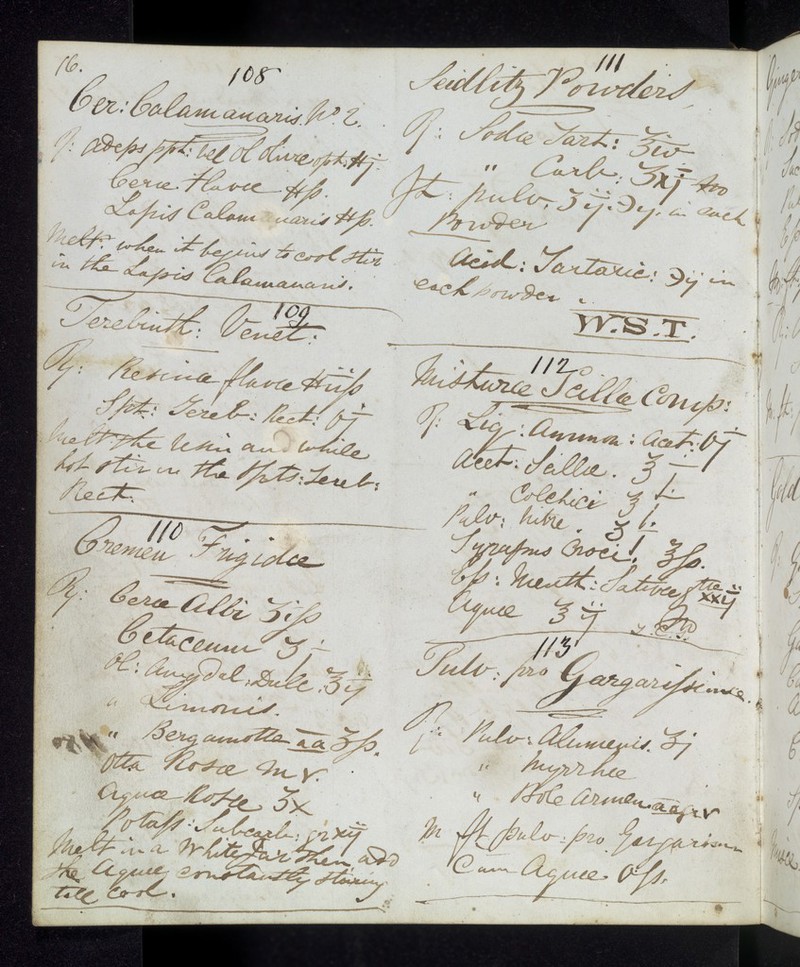 16.
108
Cer: Calamanaris No 2.
℞: adeps ppt: vel Ol Olivæ opt: ℔j
Ceræ Flavæ ℔ß.
Lapis Calamanaris ℔ß.
Melt when it begins to cool stir
in the Lapis Calamanaris.
109
Terebinth: Venet:
℞: Resinæ flavæ ℔iiß
Spt: Tereb: Rect: Oj
Melt the resin and while
hot stir in the Spts: Tereb:
Rect.
110
Cremen Frigidæ
℞: Ceræ Albi ℥iß
Cetaceum ℥j
Ol: Amygdal: Dulc: ℥ij
" Limonis.
" Bergamotta aa ʒß.
Otta Rosæ m v.
Aquæ Rosæ ℥x
Potass: Subcarb: gr xij
Melt in a White Jar then add
the Aquæ constantly stirring
till cool.
111
Seidlitz Powders
℞: Soda Tart: ℥iv
" Carb: ℥xj
ft: pulv. ʒij. ℈ij. in each
Powder
Acid: Tartaric: ℈ij in
each powder
W.S.T.
112
Misturæ Scillæ Comp:
℞: Liq: Ammon: Acet: Oj
Acet: Scillæ. ℥j
" Colchici ℥j
Pulv: Nitre. ℥j
Syrupus Croci. ℥ß.
Ess: Menth: Sativæ gtta xxij
Aquæ ℥ij
113
Pulv: pro Gargarissimæ.
℞: Pulv: Alumenis. ʒj
" Myrrhæ
" Bole Armen: aa gr v
M ft Pulv: pro Gargarism
Cum Aquæ Oß.